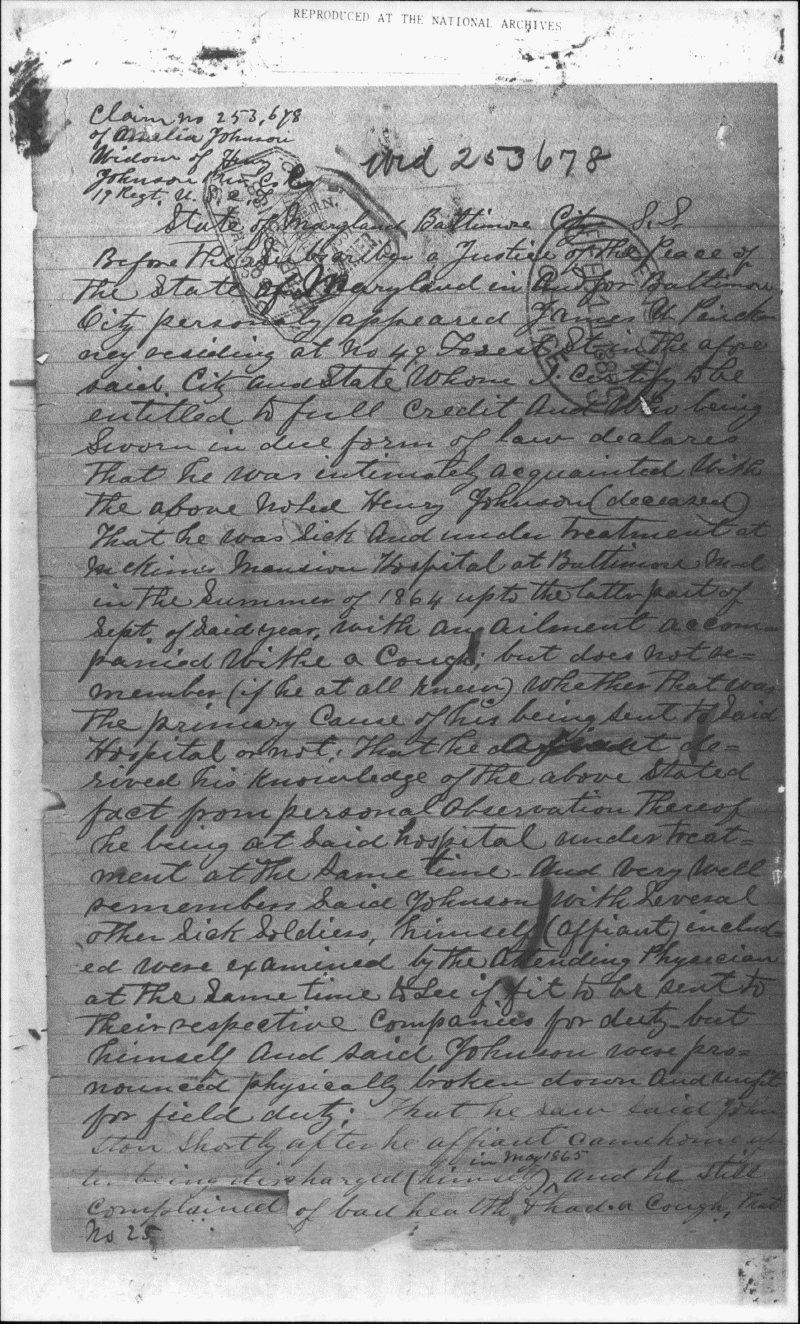 REPRODUCED AT THE NATIONAL ARCHIVES
Claim no 253,678
of Amelia Johnson
Widow of Henry
Johnson Co
19 Regt. U. S. C. T.
Wid 253678
State of Maryland Baltimore City S.S.
Before the Subscriber a Justice of the Peace of
the State of Maryland in And for Baltimore
City personaly appeared James H Pinck
ney residing at No 49 Forest St in the afore
said City and State Whom I certify to be
entitled to full Credit And Who being
Sworn in due form of law declares
That he was intimately acquainted With
the above Noted Henry Johnson (deceased)
That he was Sick And under treatment at
McKims Mansion Hospital at Baltimore Md
in the Summer of 1864 upto the latter part of
Sept. of Said year, with an ailment accom=
panied Withe a Cough; but does not re=
member (if he at all knew) whether that was
the primary Cause of his being sent to Said
Hospital or not; That he affiant de=
rived his Knowledge of the above Stated
fact from personal Observation Thereof
he being at Said hospital under treat=
ment at the Same time. And very Well
remembers Said Johnson with Several
other Sick Soldiers, himself (affiant) includ=
ed were examined by the Attending Physician
at the Same time to See if fit to be sent to
their respective Companies for duty but
himself And said Johnson were pro=
nounced physically broken down And unfit
for field duty; That he saw said John
ston Shortly after he affiant came home af
ter being discharged (himself) in May 1865 and he still
complained of bad health & had a Cough, that
No 25